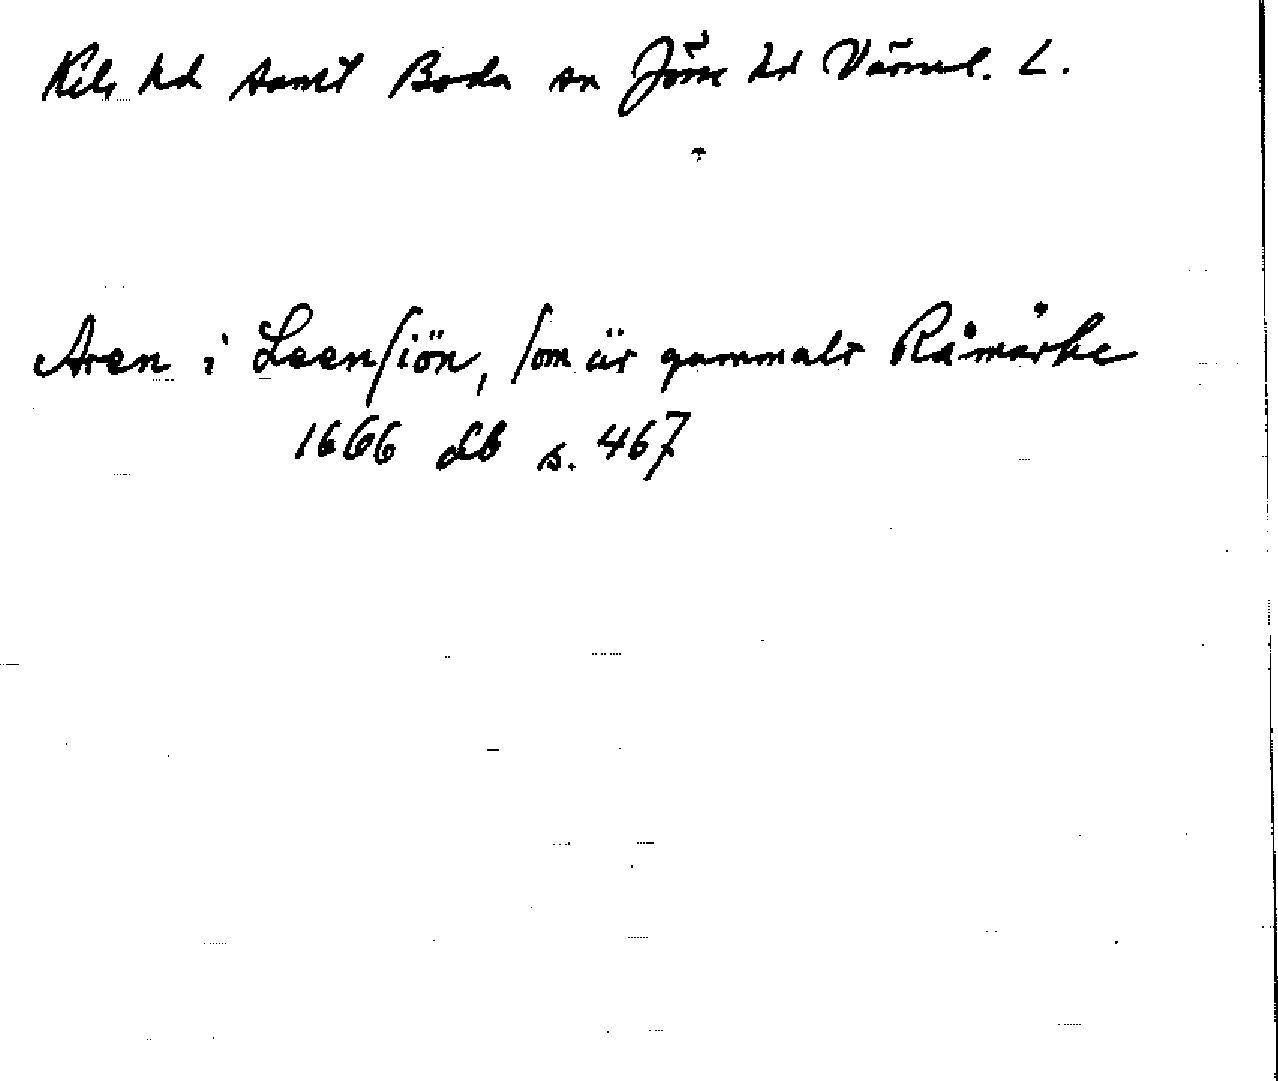 Kils hd samt Boda sn Jösse hd Värml. L.
Aren i Leensiön, som är gammalt Råmärke
1666 db s. 467